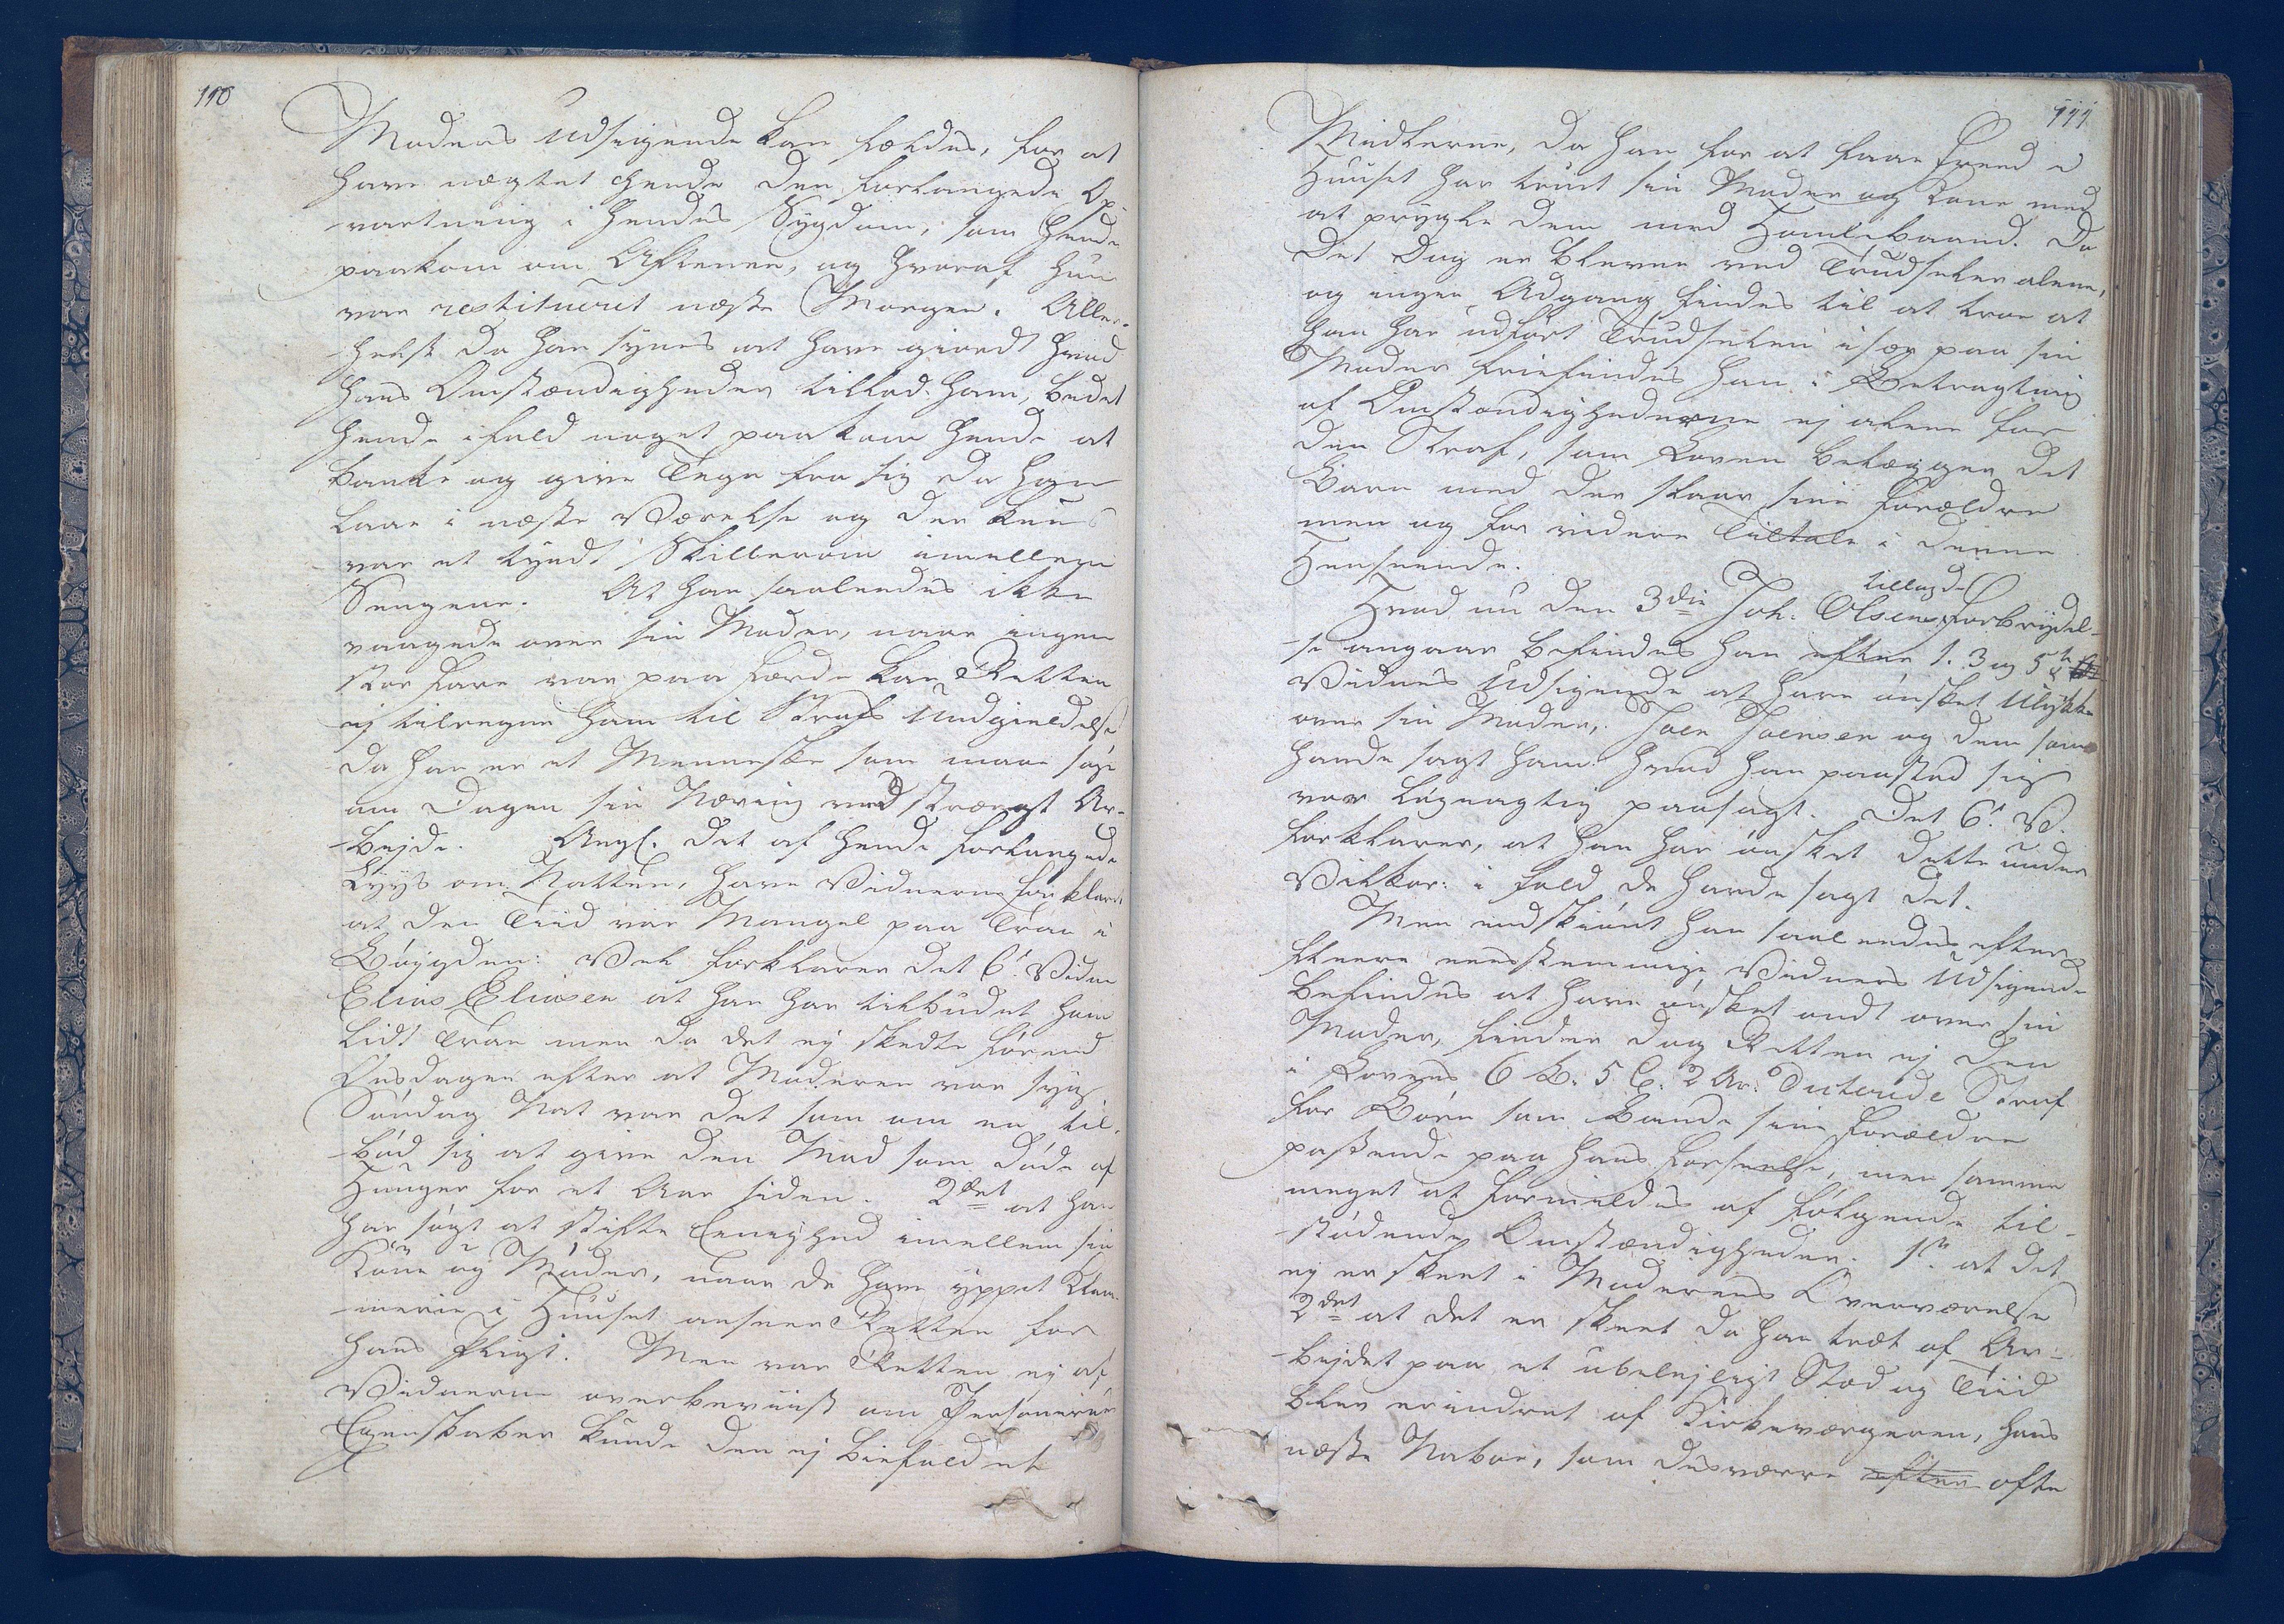 110
Moders Udsigende kan fældes, for at
have nægtet hende den forlangede Op-
vartning i hendes Sygdom, som hende
paakom om Aftenen, og hvoraf hun
var restitueret næste Morgen. Aller-
helst da han synes at have giordt hvad
hans Omstændigheder tillod ham, budet
hende ifald noget paakom hende at
banke og give Tegn fra sig da han
laae i næste Værelse og der kuns
var et tyndt Skillerom imellem
Sengene. At han saaledes ikke
vaagede over sin Moder, naar ingen
stor Fare var paa Færde kan Retten
ej tilregne ham til Strafs Undgieldelse
da han er et Menneske som maae søge
om Dagen sin Næring med strængt Ar-
bejde. Angl. det af hende forlangede
Lyys om Natten, have Vidnerne forklaret
at den Tiid var Mangel paa Tran i
Bøygden: Vel forklarer det 6t Vidne
Elias Eliasen at han har tilbudet ham
lidt Tran men da det ej skedte førend
Onsdagen efter at Moderen var syg
Søndag Nat var det som om en til-
bød sig at give den Mad som døde af
Hunger for et Aar siden. 2det at han
har søgt at stifte Eenighed imellem sin
Kone og Moder, naar de have yppet Klam-
merie i Huuset anseer Retten for
hans Pligt. Men var Retten ej af
Vidnerne overbeviist om Personernes
Egenskaber kunde den ej biefaldet
111
Midlerne, da han for at faae Freed i
Huuset har truet sin Moder og Kone med
at prygle dem med Homlebaand. Da
det dog er bleven ved Trudseler alene,
og ingen Adgang findes til at troe at
han har udført Trudselen især paa sin
Moder friefindes han i Betragtning
af Omstændighederne ej alene for
den Straf, som Loven belægger det
Barn med der slaaer sine Forældre
men og for videre Tiltale i denne
Henseende.
Hvad nu den 3die Joh: Olsen tillagde Forbrydel-
se angaaer befindes han efter 1. 3 og 5te
Vidnes Udsigende at have ønsket Ulykke
over sin Moder, Joen Joensen og dem som
havde sagt ham hvad han paastod sig
var løgnagtig paasagt. Det 6t V.
forklarer, at han har ønsket dette under
Vilkor: i fald de havde sagt det.
Men endskiønt han saaledes efter
fleere eenstemmige Vidners Udsigende
befindes at have ønsket ondt over sin
Moder, finder dog Retten ej den
i Lovens 6 B: 5 C: 2 Ar: dicterede Straf
for Børn som bande sine Forældre
passende paa hans Forseelse, men samme
meget at formildes af følgende til-
stødende Omstændigheder. 1st at det
ej er skeet i Moderens Overværelse
2det at det er skeet da han træt af Ar-
bejdet paa et ubelejligt Stæd og Tiid
blev erindret af Kirkeværgeren, hans
næste Naboe, som desværre efter ofte